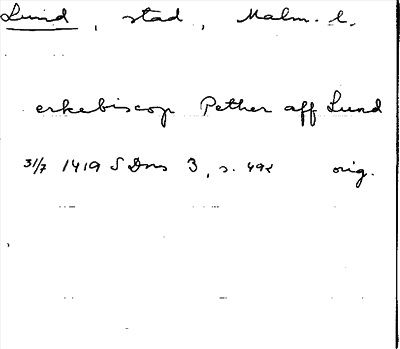 Lund, stad, Malm. l.
erkebiscop Pether aff Lund
31/7 1419 SDns 3, s. 492 orig.